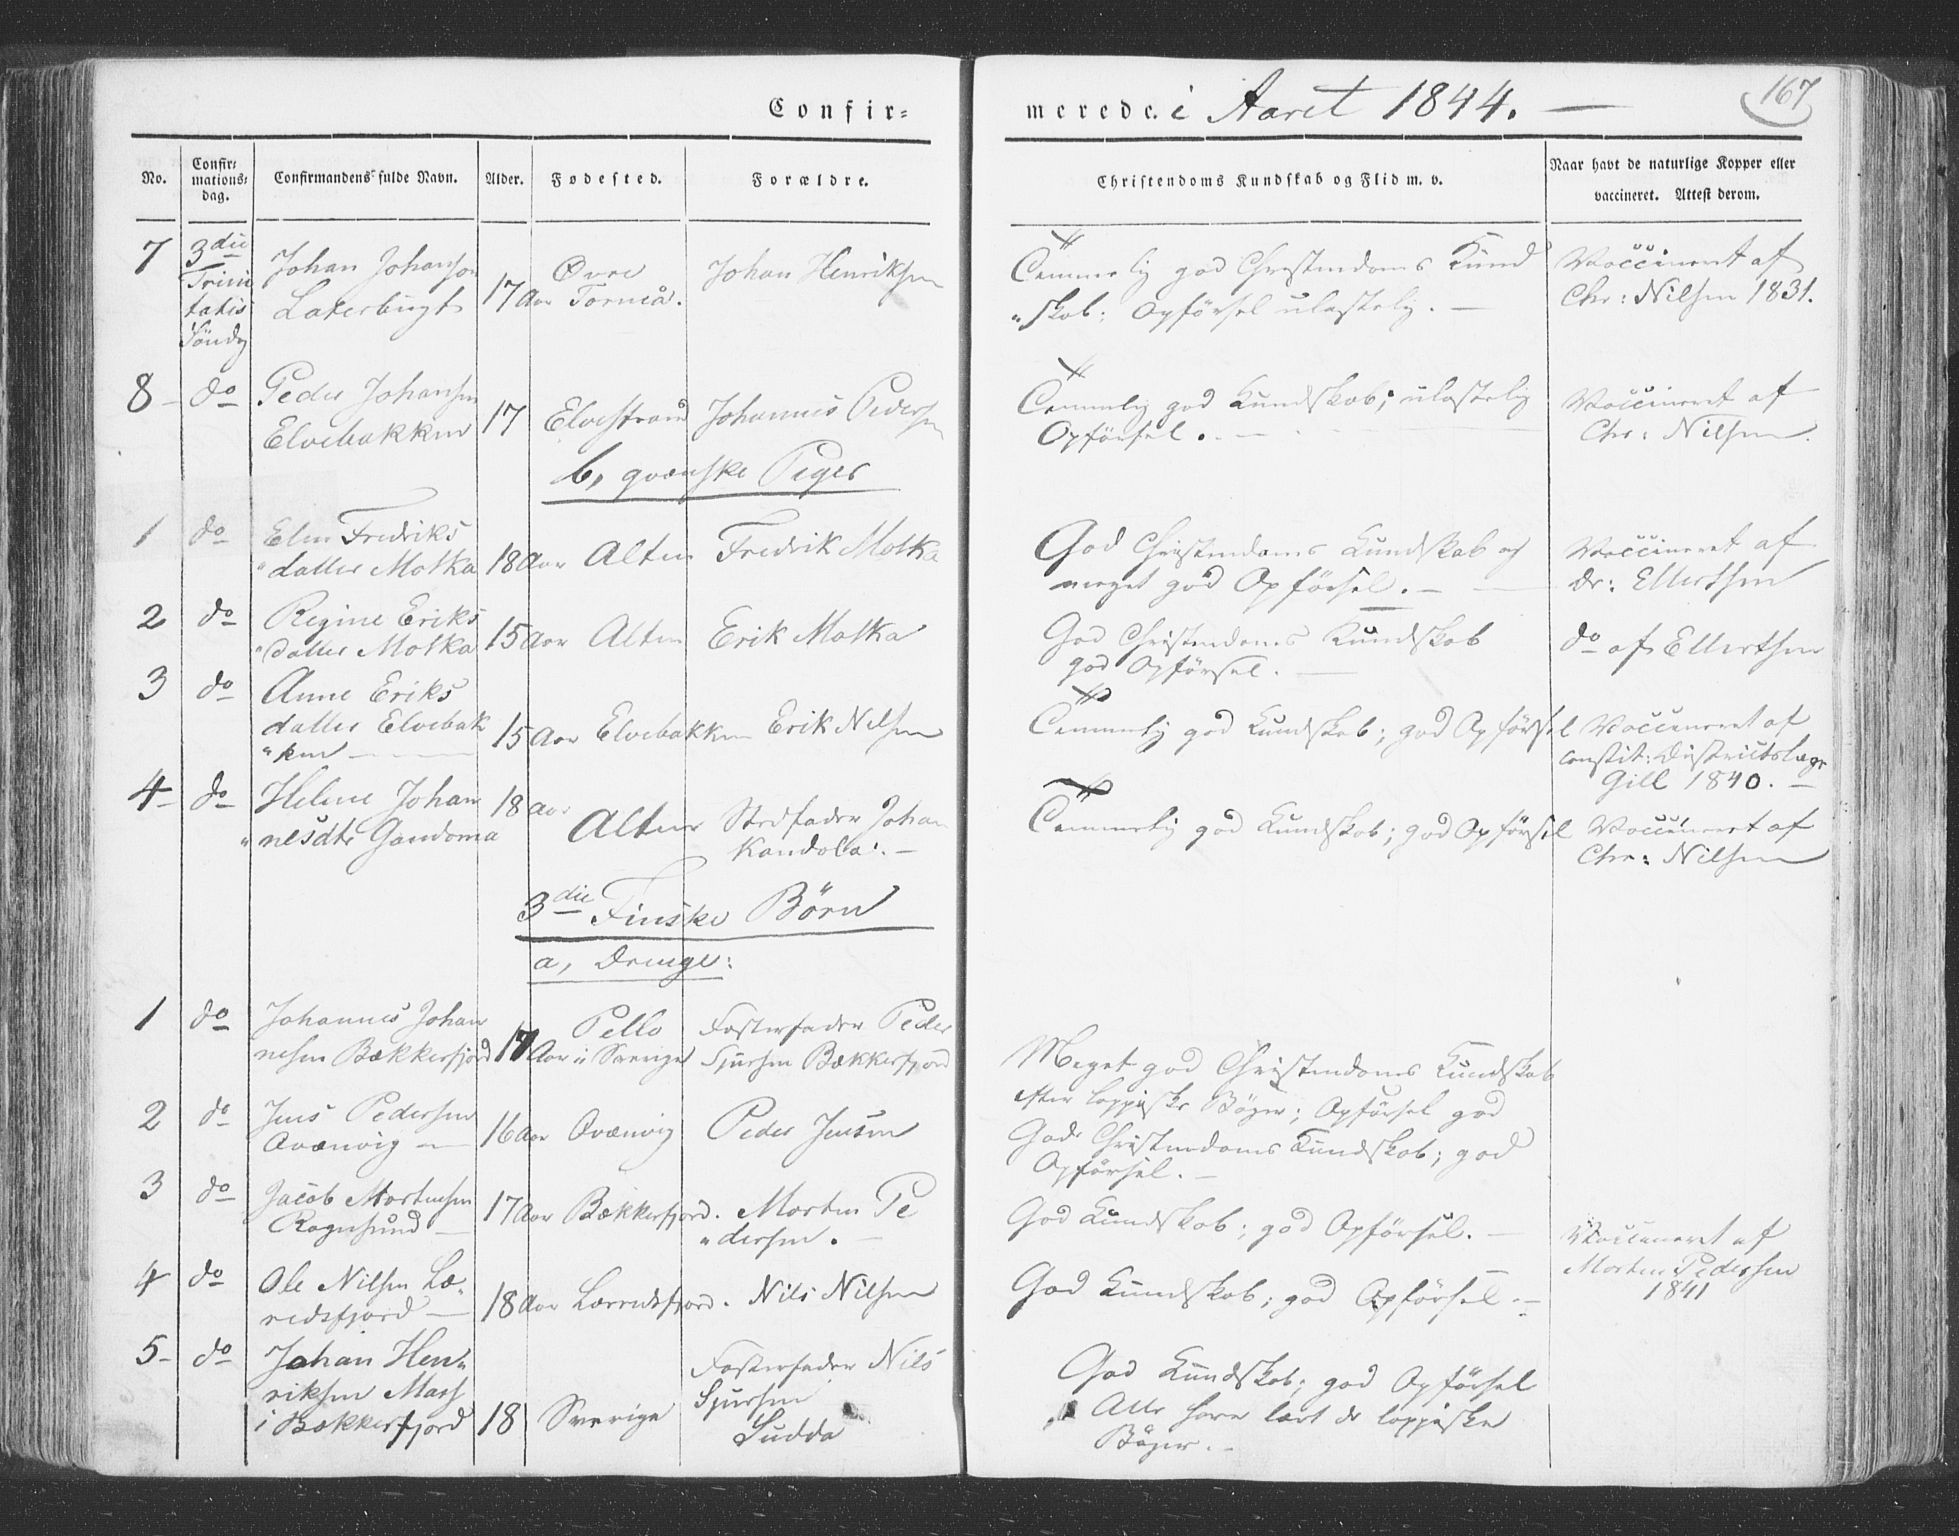 Confir=
merede. i Aaret 1844. —
167
No.
Confir=
mations=
dag.
Confirmandens fulde Navn.
Alder.
Fødested.
Forældre.
Christendoms Kundskab og Flid m. v.
Naar havt de naturlige Kopper eller
vaccineret. Attest derom.
7 3die
Trini
tatis
Søndg
Johan Johansen
Laterbugt
17 Aar
Øvre
Torneå.
Johan Henriksen
Temmelig god Christendoms Kund
"skab; Opførsel ulastelig. —
Vaccineret af
Chr: Nilsen 1831.
8 – do
Peder Johansen
Elvebakken
17
Elvestrand
Johannes Peders
en
Temmelig god Kundskab; ulastelig
Opførsel. —
Vaccineret af
Chr: Nilsen.
b, qvænske Piger
1 do
Elen Fredriks
"datter Motka
18 Aar
Alten
Fredrik Motka
God Christendoms Kundskab og
meget god Opførsel. —
Vaccineret af
Dr: Ellertsen
2 do
Regine Eriks
"datter Motka
15 Aar
Alten
Erik Motka
God Christendoms Kundskab
god Opførsel. —
do af Ellertsen
3 do
Anne Eriks
datter Elvebak
"ken —
15 Aar
Elvebakken
Erik Nilsen
Temmelig god Kundskab; god Opførsel
Vaccineret af
constit: Districtslæge
Gill 1840. —
4 – do
Helene Johan
"nesdtr Gandoma
18 Aar
Alten
Stedfader Johan
Kandola. —
Temmelig god Kundskab; god Opførsel
Vaccineret af
Chr: Nilsen
3die Finske Børn
a, Drenge:
1 do
Johannes Johan
nesen Bækkerfjord
17 Aar
Pello
i Sverige
Fosterfader Peder
Sjursen Bækkerfjord
Meget god Christendoms Kundskab
efter lappiske Bøger; Opførsel god
2 do
Jens Pedersen
Qvænvig —
16 Aar
Qvænvig
Peder Jensen
God Christendoms Kundskab; god
Opførsel. —
3 do
Jacob Mortensen
Rognsund —
17 Aar
Bækkerfjord.
Morten Pe
"dersen. —
God Kundskab; god Opførsel. —
Vaccineret af
Morten Pedersen
1841
4 do
Ole Nilsen Læ"
redsfjord —
18 Aar
Lærredsfjord.
Nils Nilsen
God Kundskab; god Opførsel. —
5 – do
Johan Hen"
riksen Mass
i Bækkerfjord
18
Sverige
Fosterfader Nils
Sjursen
Sudda
God Kundskab; god Opførsel
Alle have lært de lappiske
Bøger. —